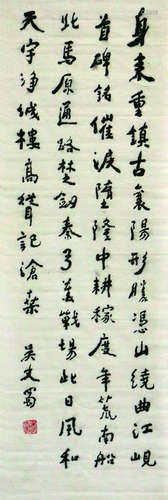 身来重镇古襄阳形胜凭山绕曲江岘
首碑铭催淚堕隆中耕稼度年荒南船
北马原通路楚剑秦弓旧战场此日风和
天宇净城楼高耸記滄桑
吴丈蜀